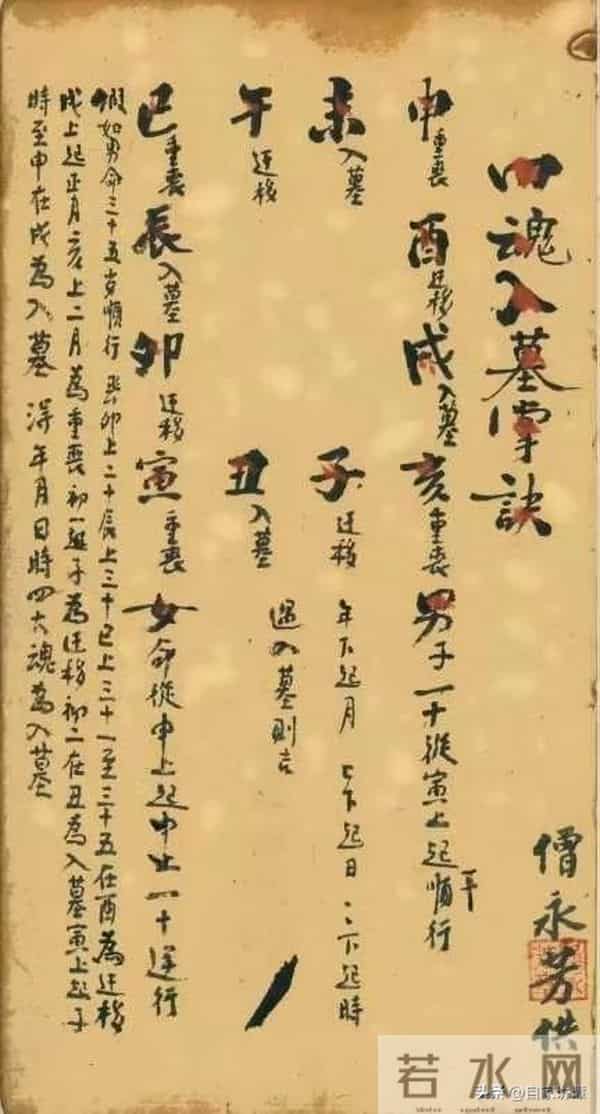 四魂入墓掌訣
僧永芳供
申重喪 酉迁移 戌入墓 亥重喪 男子一十從寅上起順行
未入墓 子迁移 年下起月 月下起日 日下起時
午迁移 丑入墓 遇入墓則吉
巳重喪 辰入墓 卯迁移 寅重喪 女命從申上起 一十逆行
假如男命三十五岁順行 卯上二十辰上三十巳上三十一至三十五在酉為迁移
戌上起正月亥上二月為重喪初一起子為迁移初二在丑為入墓寅上起子
時至申在戌為入墓 得年月日時四大魂為入墓
若水网
头条 @